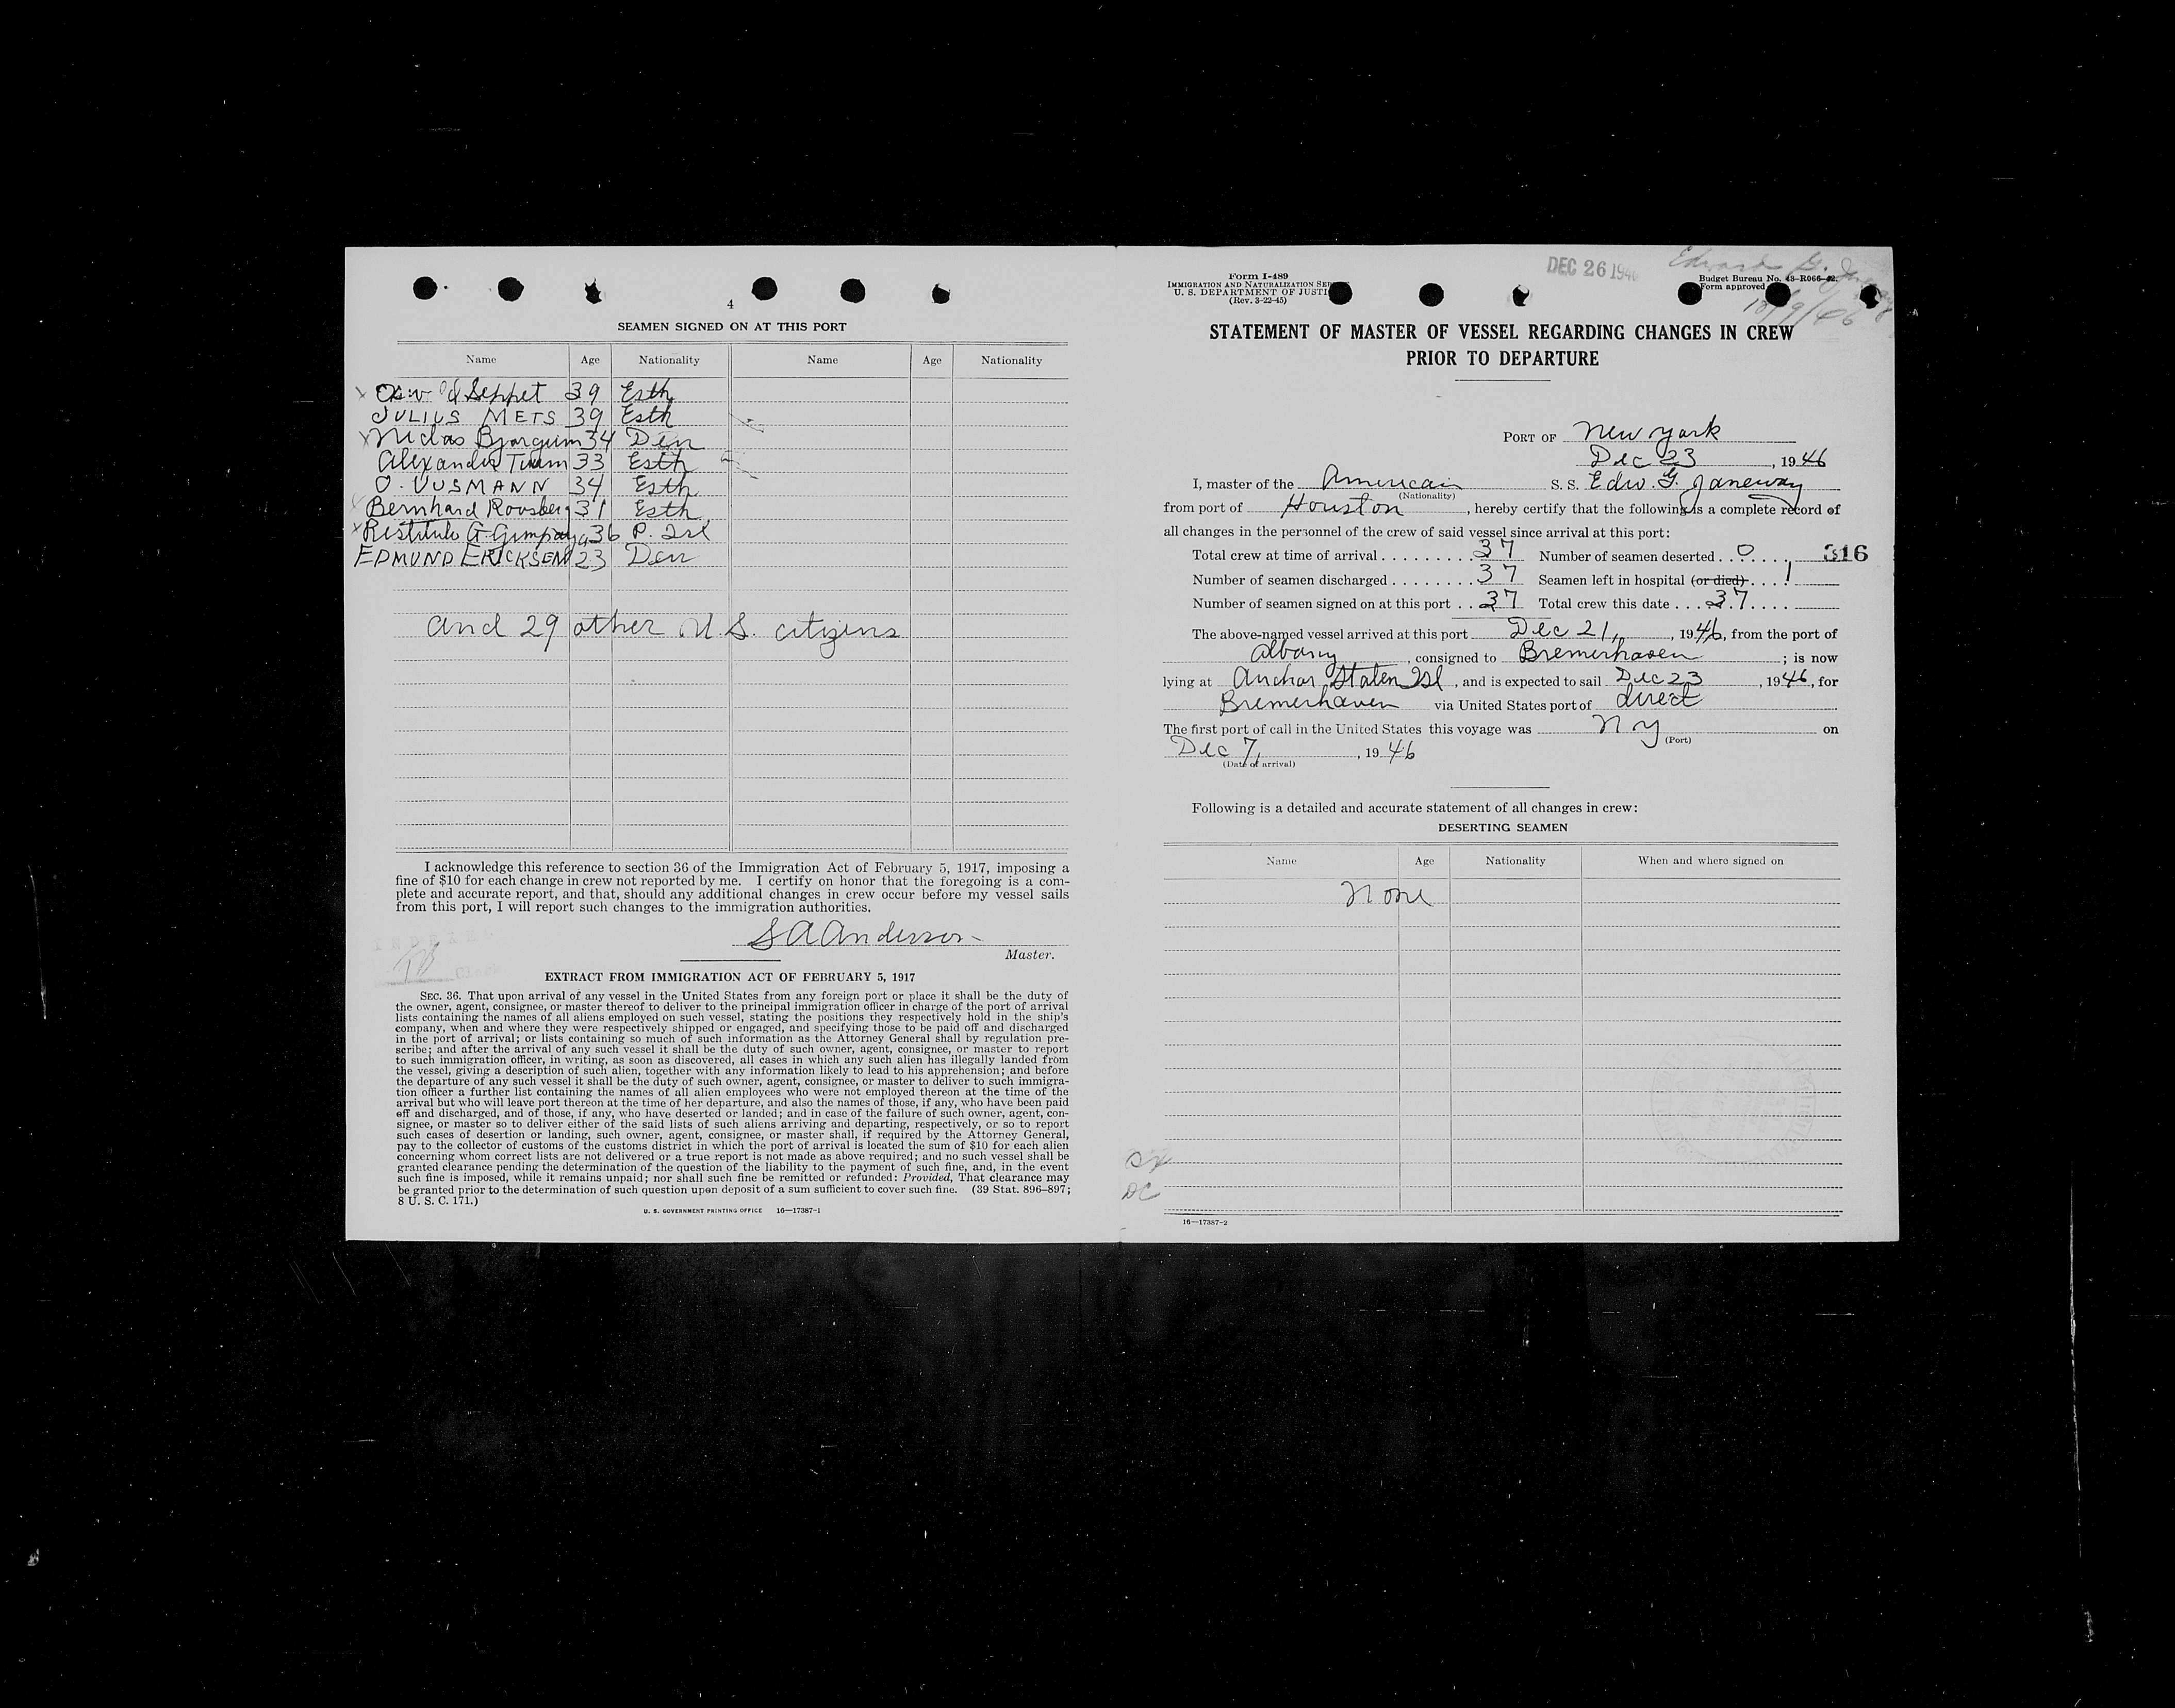 4
SEAMEN SIGNED ON AT THIS PORT
Name Age Nationality Name Age Nationality
x Seppet 39 Esth
JULIUS METS 39 Esth
x Niclas Bjorgum 34 Den
Alexander 33 Esth
O. UUSMANN 34 Esth
Bernhard Roosberg 31 Esth
x Restituto G Gumpaya 36 P. Isl
EDMUND ERICKSEN 23 Den
and 29 other U.S. citizens
I acknowledge this reference to section 36 of the Immigration Act of February 5, 1917, imposing a
fine of $10 for each change in crew not reported by me. I certify on honor that the foregoing is a com-
plete and accurate report, and that, should any additional changes in crew occur before my vessel sails
from this port, I will report such changes to the immigration authorities.
S A Anderson
Master.
EXTRACT FROM IMMIGRATION ACT OF FEBRUARY 5, 1917
SEC. 36. That upon arrival of any vessel in the United States from any foreign port or place it shall be the duty of
the owner, agent, consignee, or master thereof to deliver to the principal immigration officer in charge of the port of arrival
lists containing the names of all aliens employed on such vessel, stating the positions they respectively hold in the ship's
company, when and where they were respectively shipped or engaged, and specifying those to be paid off and discharged
in the port of arrival; or lists containing so much of such information as the Attorney General shall by regulation pre-
scribe; and after the arrival of any such vessel it shall be the duty of such owner, agent, consignee, or master to report
to such immigration officer, in writing, as soon as discovered, all cases in which any such alien has illegally landed from
the vessel, giving a description of such alien, together with any information likely to lead to his apprehension; and before
the departure of any such vessel it shall be the duty of such owner, agent, consignee, or master to deliver to such immigra-
tion officer a further list containing the names of all alien employees who were not employed thereon at the time of the
arrival but who will leave port thereon at the time of her departure, and also the names of those, if any, who have been paid
off and discharged, and of those, if any, who have deserted or landed; and in case of the failure of such owner, agent, con-
signee, or master so to deliver either of the said lists of such aliens arriving and departing, respectively, or so to report
such cases of desertion or landing, such owner, agent, consignee, or master shall, if required by the Attorney General,
pay to the collector of customs of the customs district in which the port of arrival is located the sum of $10 for each alien
concerning whom correct lists are not delivered or a true report is not made as above required; and no such vessel shall be
granted clearance pending the determination of the question of the liability to the payment of such fine, and, in the event
such fine is imposed, while it remains unpaid; nor shall such fine be remitted or refunded: Provided, That clearance may
be granted prior to the determination of such question upon deposit of a sum sufficient to cover such fine. (39 Stat. 896–897;
8 U. S. C. 171.)
U. S. GOVERNMENT PRINTING OFFICE 16—17387-1
Form I-489
IMMIGRATION AND NATURALIZATION SER
U. S. DEPARTMENT OF JUSTI
(Rev. 3-22-45)
DEC 26 1946
Edward G.
Budget Bureau No. 43-R066-42.
Form approved
STATEMENT OF MASTER OF VESSEL REGARDING CHANGES IN CREW
PRIOR TO DEPARTURE
PORT OF New York
Dec 23, 1946
I, master of the American S. S. Edw. G. Janeway
(Nationality)
from port of Houston, hereby certify that the following is a complete record of
all changes in the personnel of the crew of said vessel since arrival at this port:
Total crew at time of arrival 37 Number of seamen deserted 0 316
Number of seamen discharged 37 Seamen left in hospital (or died) 1
Number of seamen signed on at this port 37 Total crew this date 37
The above-named vessel arrived at this port Dec 21, 1946, from the port of
Albany, consigned to Bremerhaven; is now
lying at Anchor Staten Isl, and is expected to sail Dec 23, 1946, for
Bremerhaven via United States port of direct
The first port of call in the United States this voyage was N Y on
(Port)
Dec 7, 1946
(Date of arrival)
Following is a detailed and accurate statement of all changes in crew:
DESERTING SEAMEN
Name Age Nationality When and where signed on
None
DC
16—17387-2